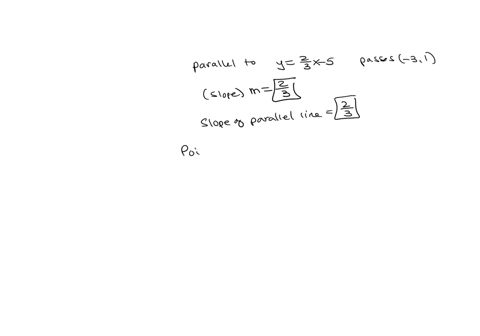 parallel to y = 2/3 x - 5 passes (-3, 1)
(slope) m = 2/3
slope of parallel line = 2/3
Poi